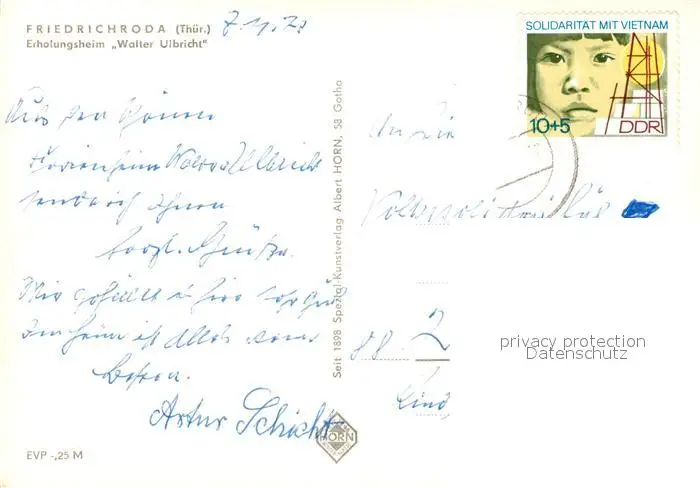 FRIEDRICHRODA (Thür.)
Erholungsheim „Walter Ulbricht"
SOLIDARITÄT MIT VIETNAM
10+5 DDR
Aus dem schönen
Ferienheim Walter Ulbricht
sende ich Ihnen
herzl. Grüße.
Mir gefällt es hier sehr gut
Im Heim ist alles vom
Besten.
Artur Schicht
EVP -,25 M
Seit 1898 Spezial-Kunstverlag Albert HORN, 58 Gotha
HORN
An die
Volkssolidarität
88 2
privacy protection
Datenschutz